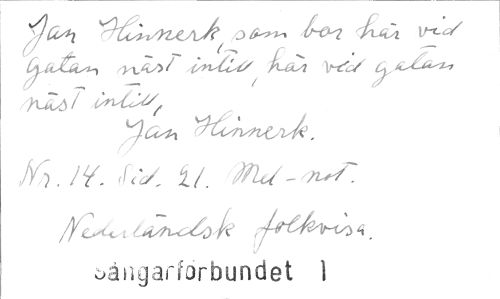 Jan Hinnerk, som bor här vid
gatan näst intill, här vid gatan
näst intill,
Jan Hinnerk.
Nr. 14. Sid. 21. Mel-not.
Nederländsk folkvisa.
Sångarförbundet 1